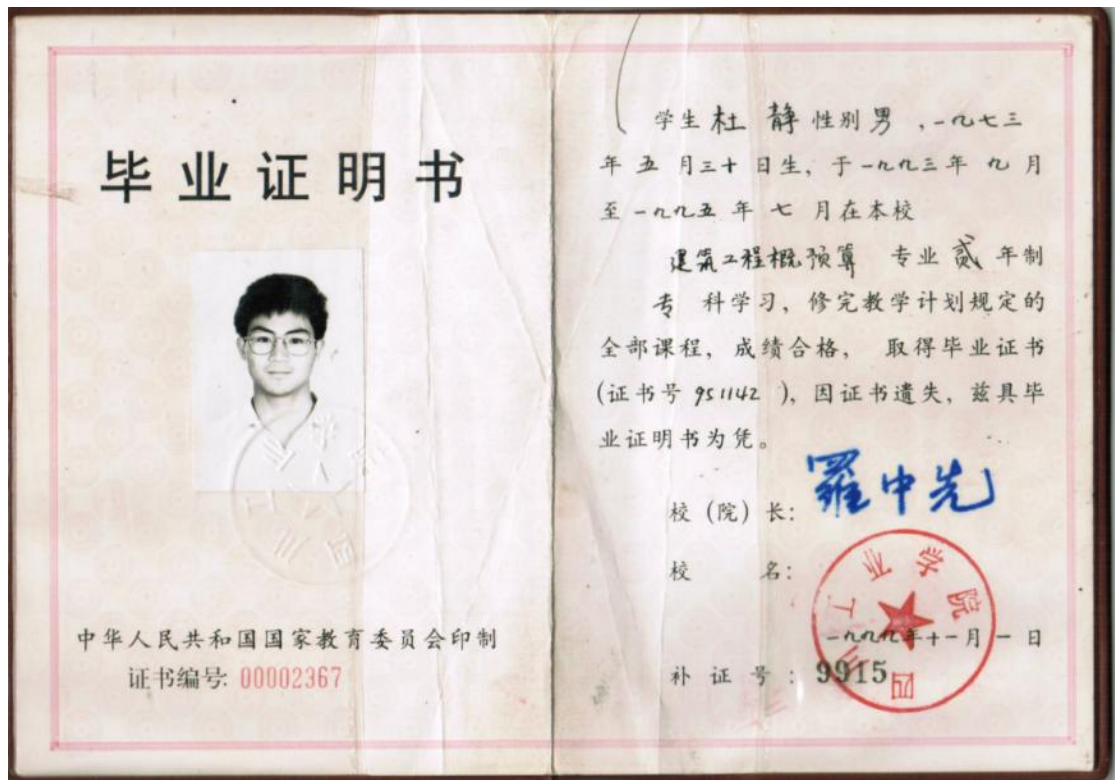 毕业证明书
中华人民共和国国家教育委员会印制
证书编号: 00002367
学生杜 静性别男,一九七三
年五月三十日生,于一九九三年九月
至一九九五年七月在本校
建筑工程概预算 专业贰年制
专 科学习,修完教学计划规定的
全部课程,成绩合格, 取得毕业证书
(证书号951142),因证书遗失,兹具毕
业证明书为凭。
校(院)长: 罗中先
校 名:
四川工业学院
一九九九年十一月一日
补证号: 9915